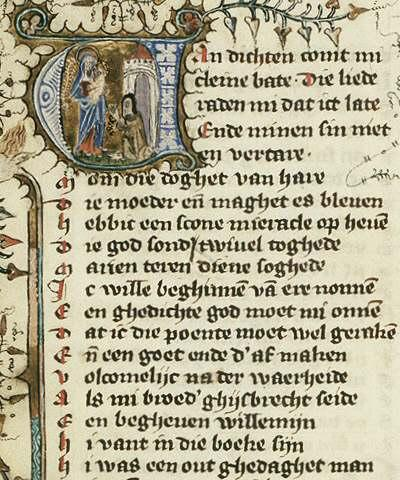 Van dichten comt mi
cleine bate. Die liede
raden mi dat ict late
Ende minen sin niet
en vertare.
Om die doghet van hare
Die moeder en̄ maghet es bleven
Hebbic een scone mieracle op heuē
Die god sond' twiuel toghede
Marien teren diene soghede
Ic wille beghinnē vā ere nonnē
Een ghedichte god moet mi onnē
Dat ic die poente moet wel gerakē
En̄ een goet ende d'af maken
Volcomelijc na der waerheide
Als mi broed' ghijsbrecht seide
Een begheuen willemijn
Hi vant in die boeke sijn
Hi was een out ghedaghet man